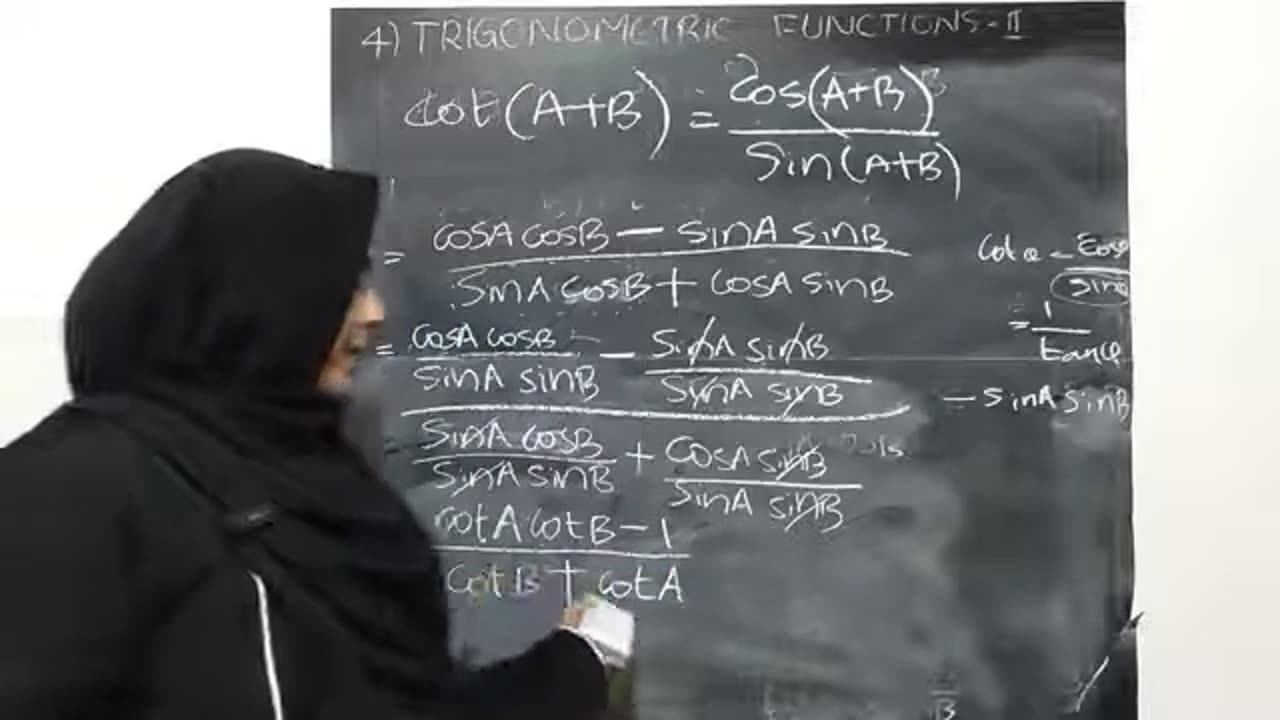 4) TRIGONOMETRIC FUNCTIONS-II
cot(A+B) = cos(A+B)
sin(A+B)
= cosA cosB - sinA sinB
sinA cosB + cosA sinB
cosA cosB - sinA sinB
= sinA sinB sinA sinB
sinA cosB + cosA sinB
sinA sinB sinA sinB
cotA cotB - 1
cotB + cotA
= 1
- sinA sinB